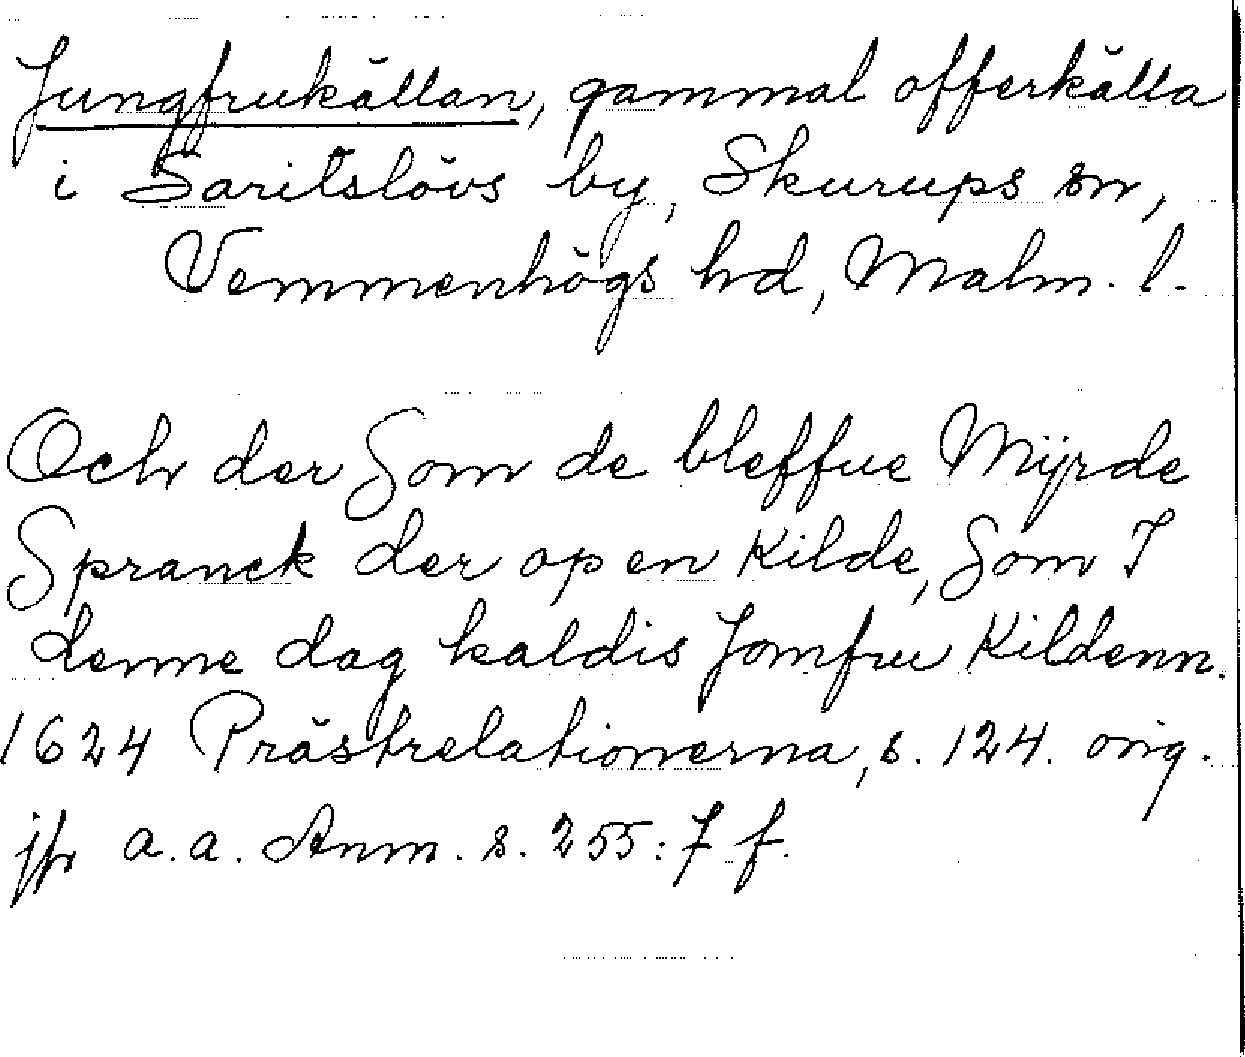 Jungfrukällan, gammal offerkälla
i Saritslövs by, Skurups sn,
Vemmenhögs hd, Malm. l.
Och der Som de bleffue Mÿrde
Spranck der op en Kilde, Som I
denne dag kaldis Jomfru Kildenn.
1624 Prästrelationerna, s. 124. orig.
jfr a.a. Anm. s. 255:7 f.